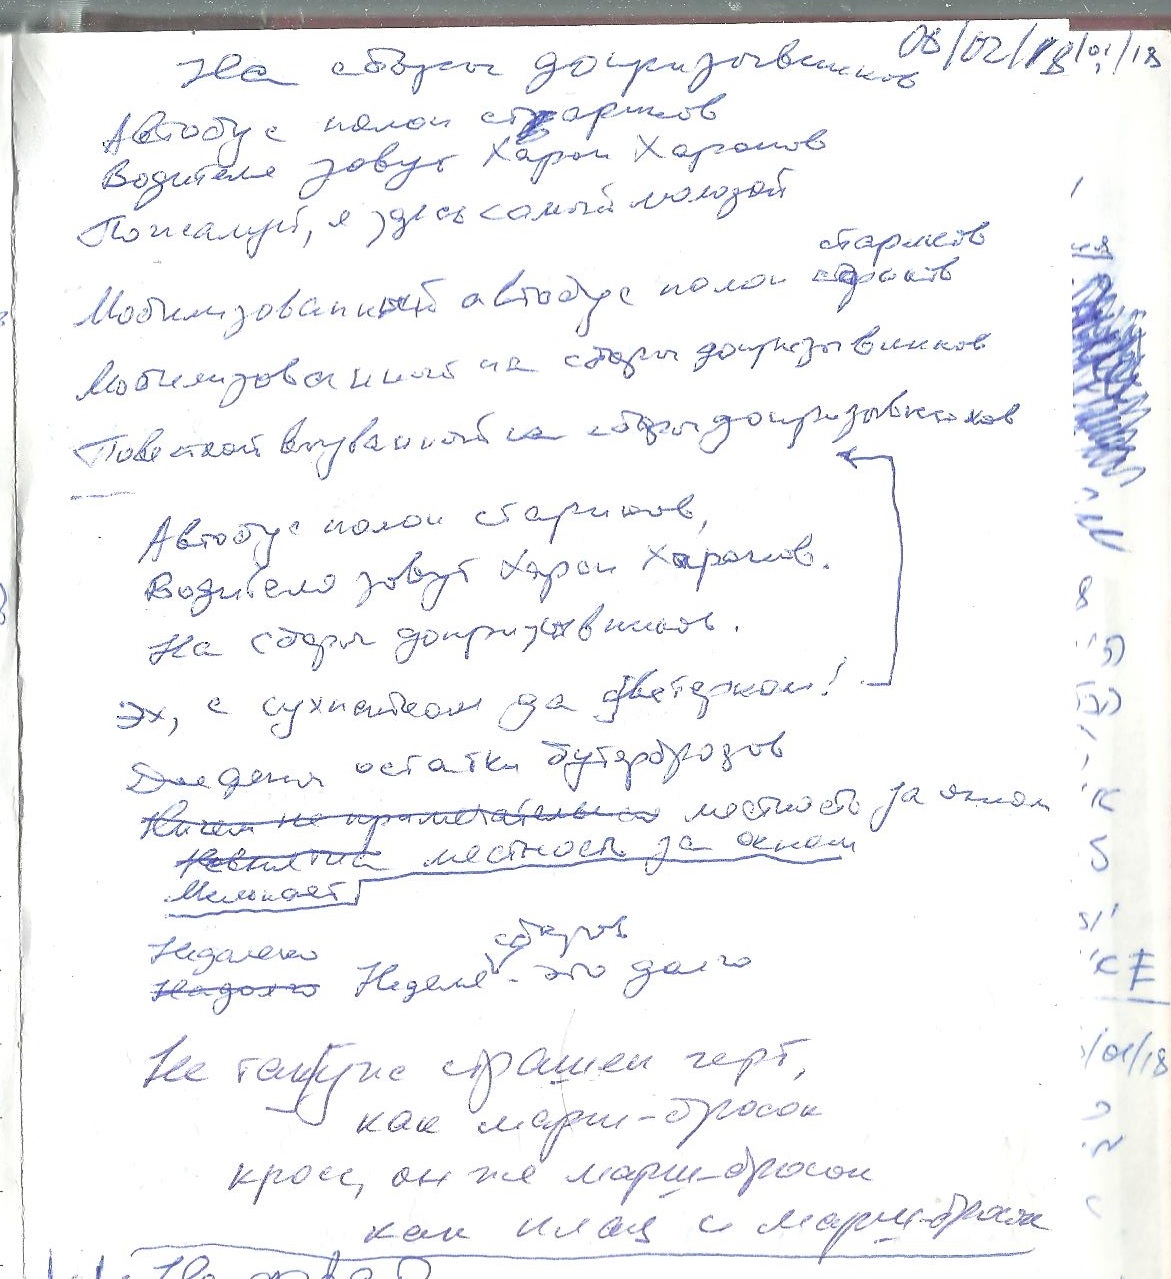 08/02/18
На сборы допризывников
Автобус полон стариков
Водителя зовут Харон Харонов
Пожалуй, я здесь самый молодой
стариков
Мобилизованный автобус полон
Мобилизованный на сборы допризывников
Повесткой вызванный на сборы допризывников
Автобус полон стариков,
Водителя зовут Харон Харонов.
На сборы допризывников.
Эх, с сухпайком да с ветерком!
остатки бутербродов
Ничем не примечательна местность за окном
местность за окном
Мелькает
Недалеко
сборов
Надолго Неделя - это долго
Не так уже страшен черт,
как марш-бросок
кросс, он же марш-бросок
как плац и марш-бросок
/01/18